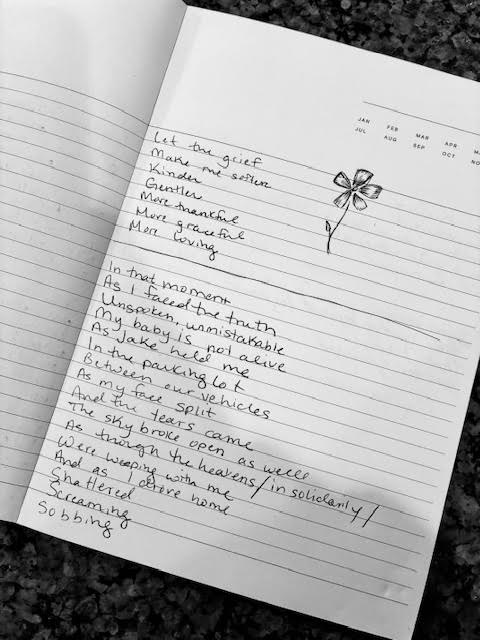 JAN FEB MAR APR
JUL AUG SEP OCT
Let the grief
Make me softer
Kinder
Gentler
More thankful
More graceful
More loving
In that moment
As I faced the truth
Unspoken, unmistakable
My baby is not alive
As Jake held me
In the parking lot
Between our vehicles
As my face split
And the tears came
The sky broke open as well
As though the heavens /in solidarity/
Were weeping with me
And as I drove home
Shattered
Screaming
Sobbing